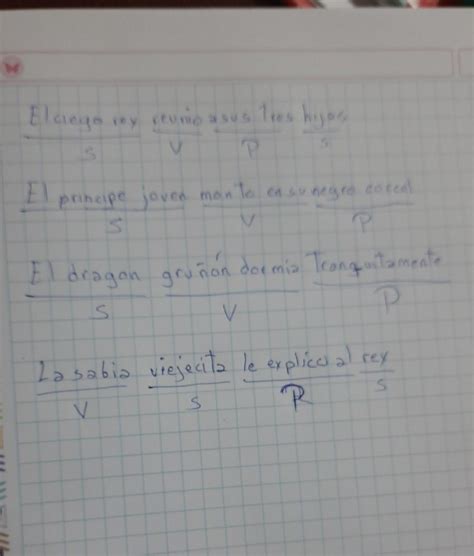 El ciego rey reunió a sus Tres hijos
S V P S
El principe joven monto en su negro corcel
S V P
El dragon gruñón dormia Tranquilamente
S V P
La sabia viejecita le explico al rey
V S P S